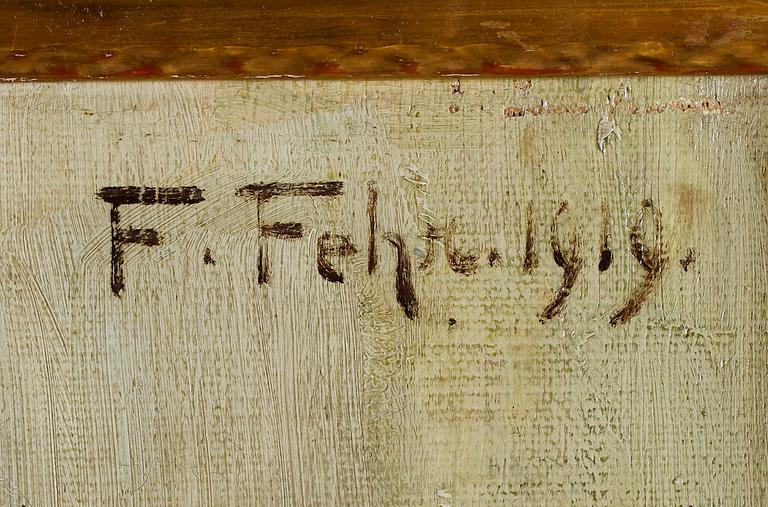 F. Fehr. 1919.